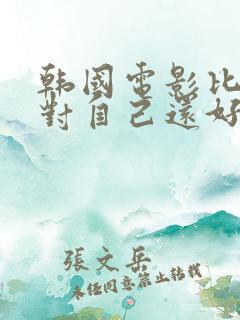 韩國電影比
對自己還好
張文岳
未经同意禁止转载